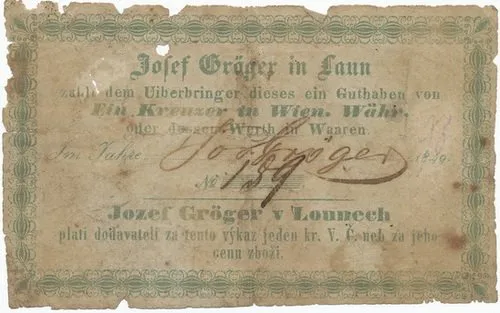 Josef Gröger in Laun
zahlt dem Uiberbringer dieses ein Guthaben von
Ein Kreuzer in Wien. Währ.
oder dessen Werth in Waaren.
Im Jahre Jos Gröger 1849.
№ 189
Jozef Gröger v Lounech
platí dodavateli za tento výkaz jeden kr. V. Č. neb za jeho
cenu zboží.